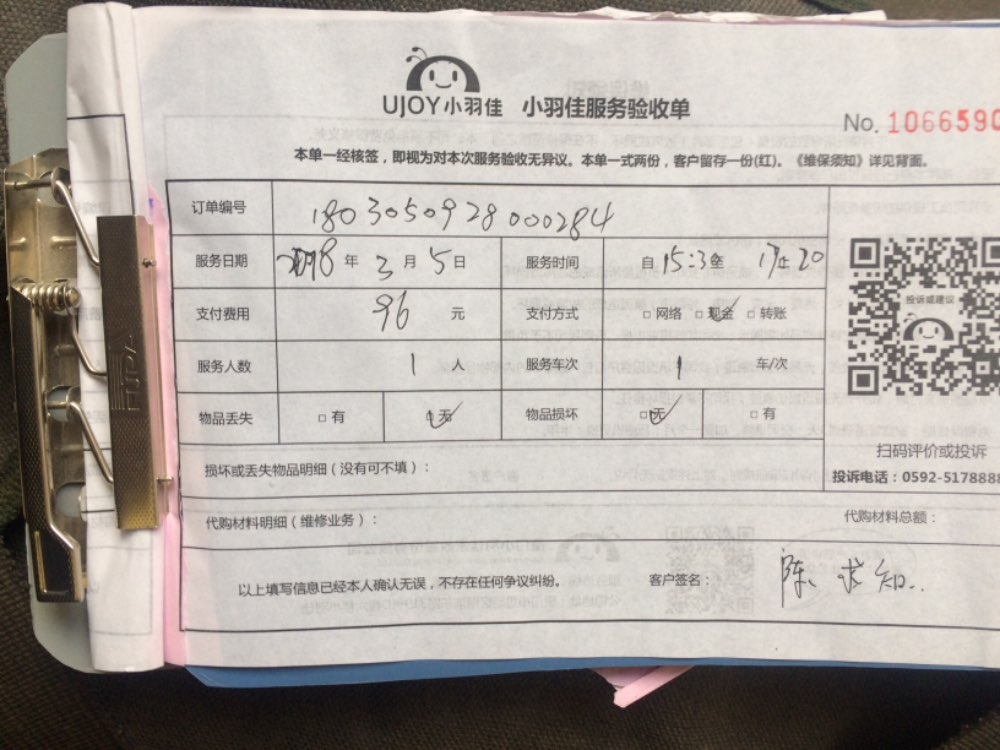 UJOY小羽佳 小羽佳服务验收单
No. 1066590
本单一经核签，即视为对本次服务验收无异议。本单一式两份，客户留存一份(红)。《维保须知》详见背面。
订单编号 1803050928000284
服务日期 2018年3月5日 服务时间 自15:3至17止20
支付费用 96元 支付方式 □网络 □现金 □转账
服务人数 1人 服务车次 1车/次
物品丢失 □有 □无 物品损坏 □无 □有
投诉或建议
扫码评价或投诉
损坏或丢失物品明细（没有可不填）：
投诉电话：0592-5178888
代购材料明细（维修业务）： 代购材料总额：
以上填写信息已经本人确认无误，不存在任何争议纠纷。 客户签名： 陈求知.